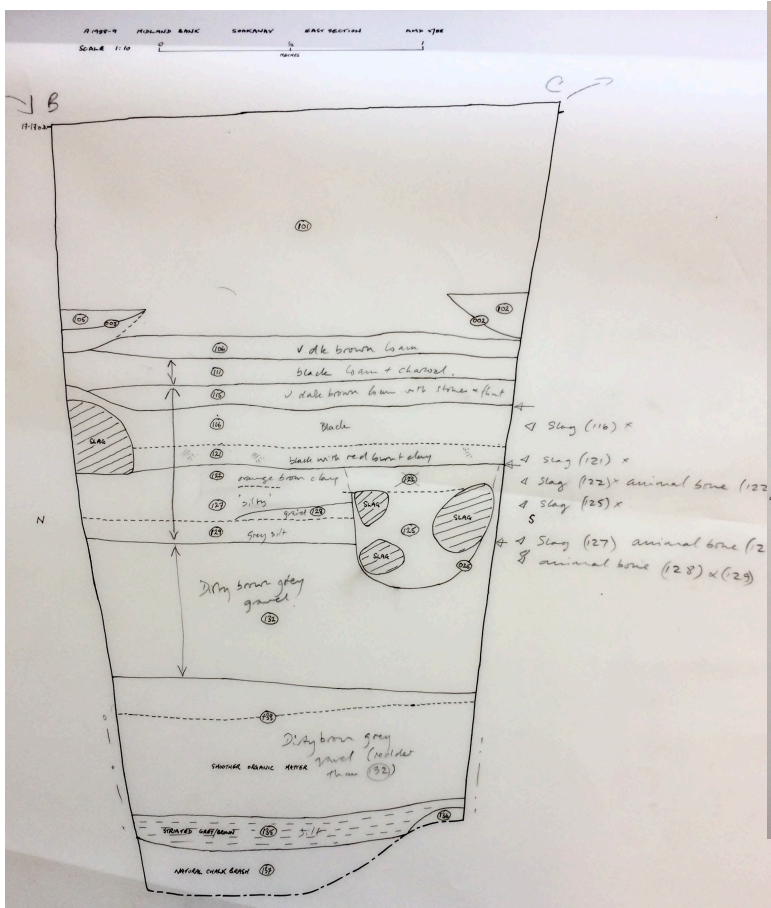 A 1988-9 MIDLAND BANK SOAKAWAY EAST SECTION
SCALE 1:10 0 ½ 1
METRES
B C
101
105 003 002 102
106 v dk brown loam
111 black loam + charcoal.
115 v dark brown loam with stones + flint
116 Black
SLAG
121 black with red burnt clay
122 orange brown clay 122
127 'silty'
gravel 128
SLAG
125
SLAG
129 Grey silt
SLAG
026
N S
Slag (116) x
Slag (121) x
Slag (122) x animal bone (122
Slag (125) x
Slag (127) animal bone (12
animal bone (128) x (129)
Dirty brown grey
gravel.
132
133
Dirty brown grey
gravel (redder
than 132)
SMOOTHER ORGANIC MATTER
STRIATED GREY/BROWN 135 silt
136
NATURAL CHALK BRASH 137